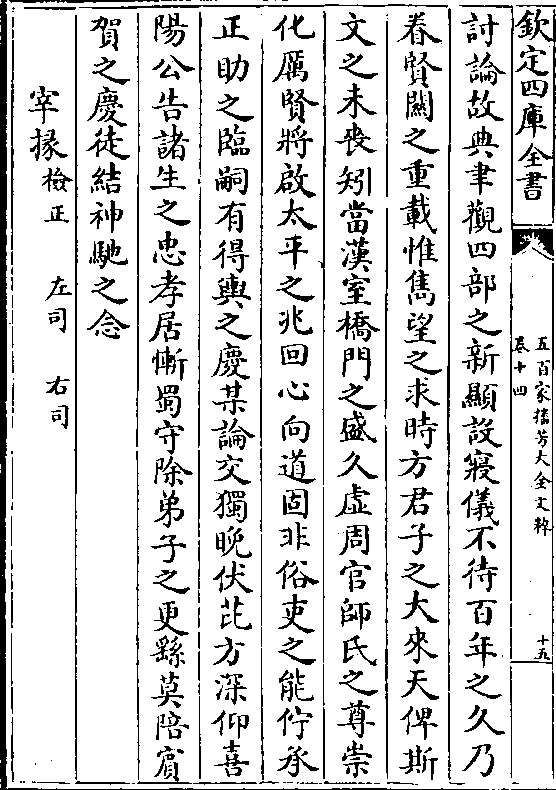 欽定四庫全書
五百家播芳大全文粹
卷十四
十五
討論故典聿觀四部之新顯設寢儀不待百年之久乃
眷賢闗之重載惟雋望之求時方君子之大來天俾斯
文之未喪矧當漢室橋門之盛久虛周官師氏之尊崇
化厲賢將啟太平之兆回心向道固非俗吏之能佇承
正助之臨嗣有得輿之慶某論交獨晚伏芘方深仰喜
陽公告諸生之忠孝居慚蜀守除弟子之更繇莫陪賓
賀之慶徒結神馳之念
宰掾檢正 左司 右司